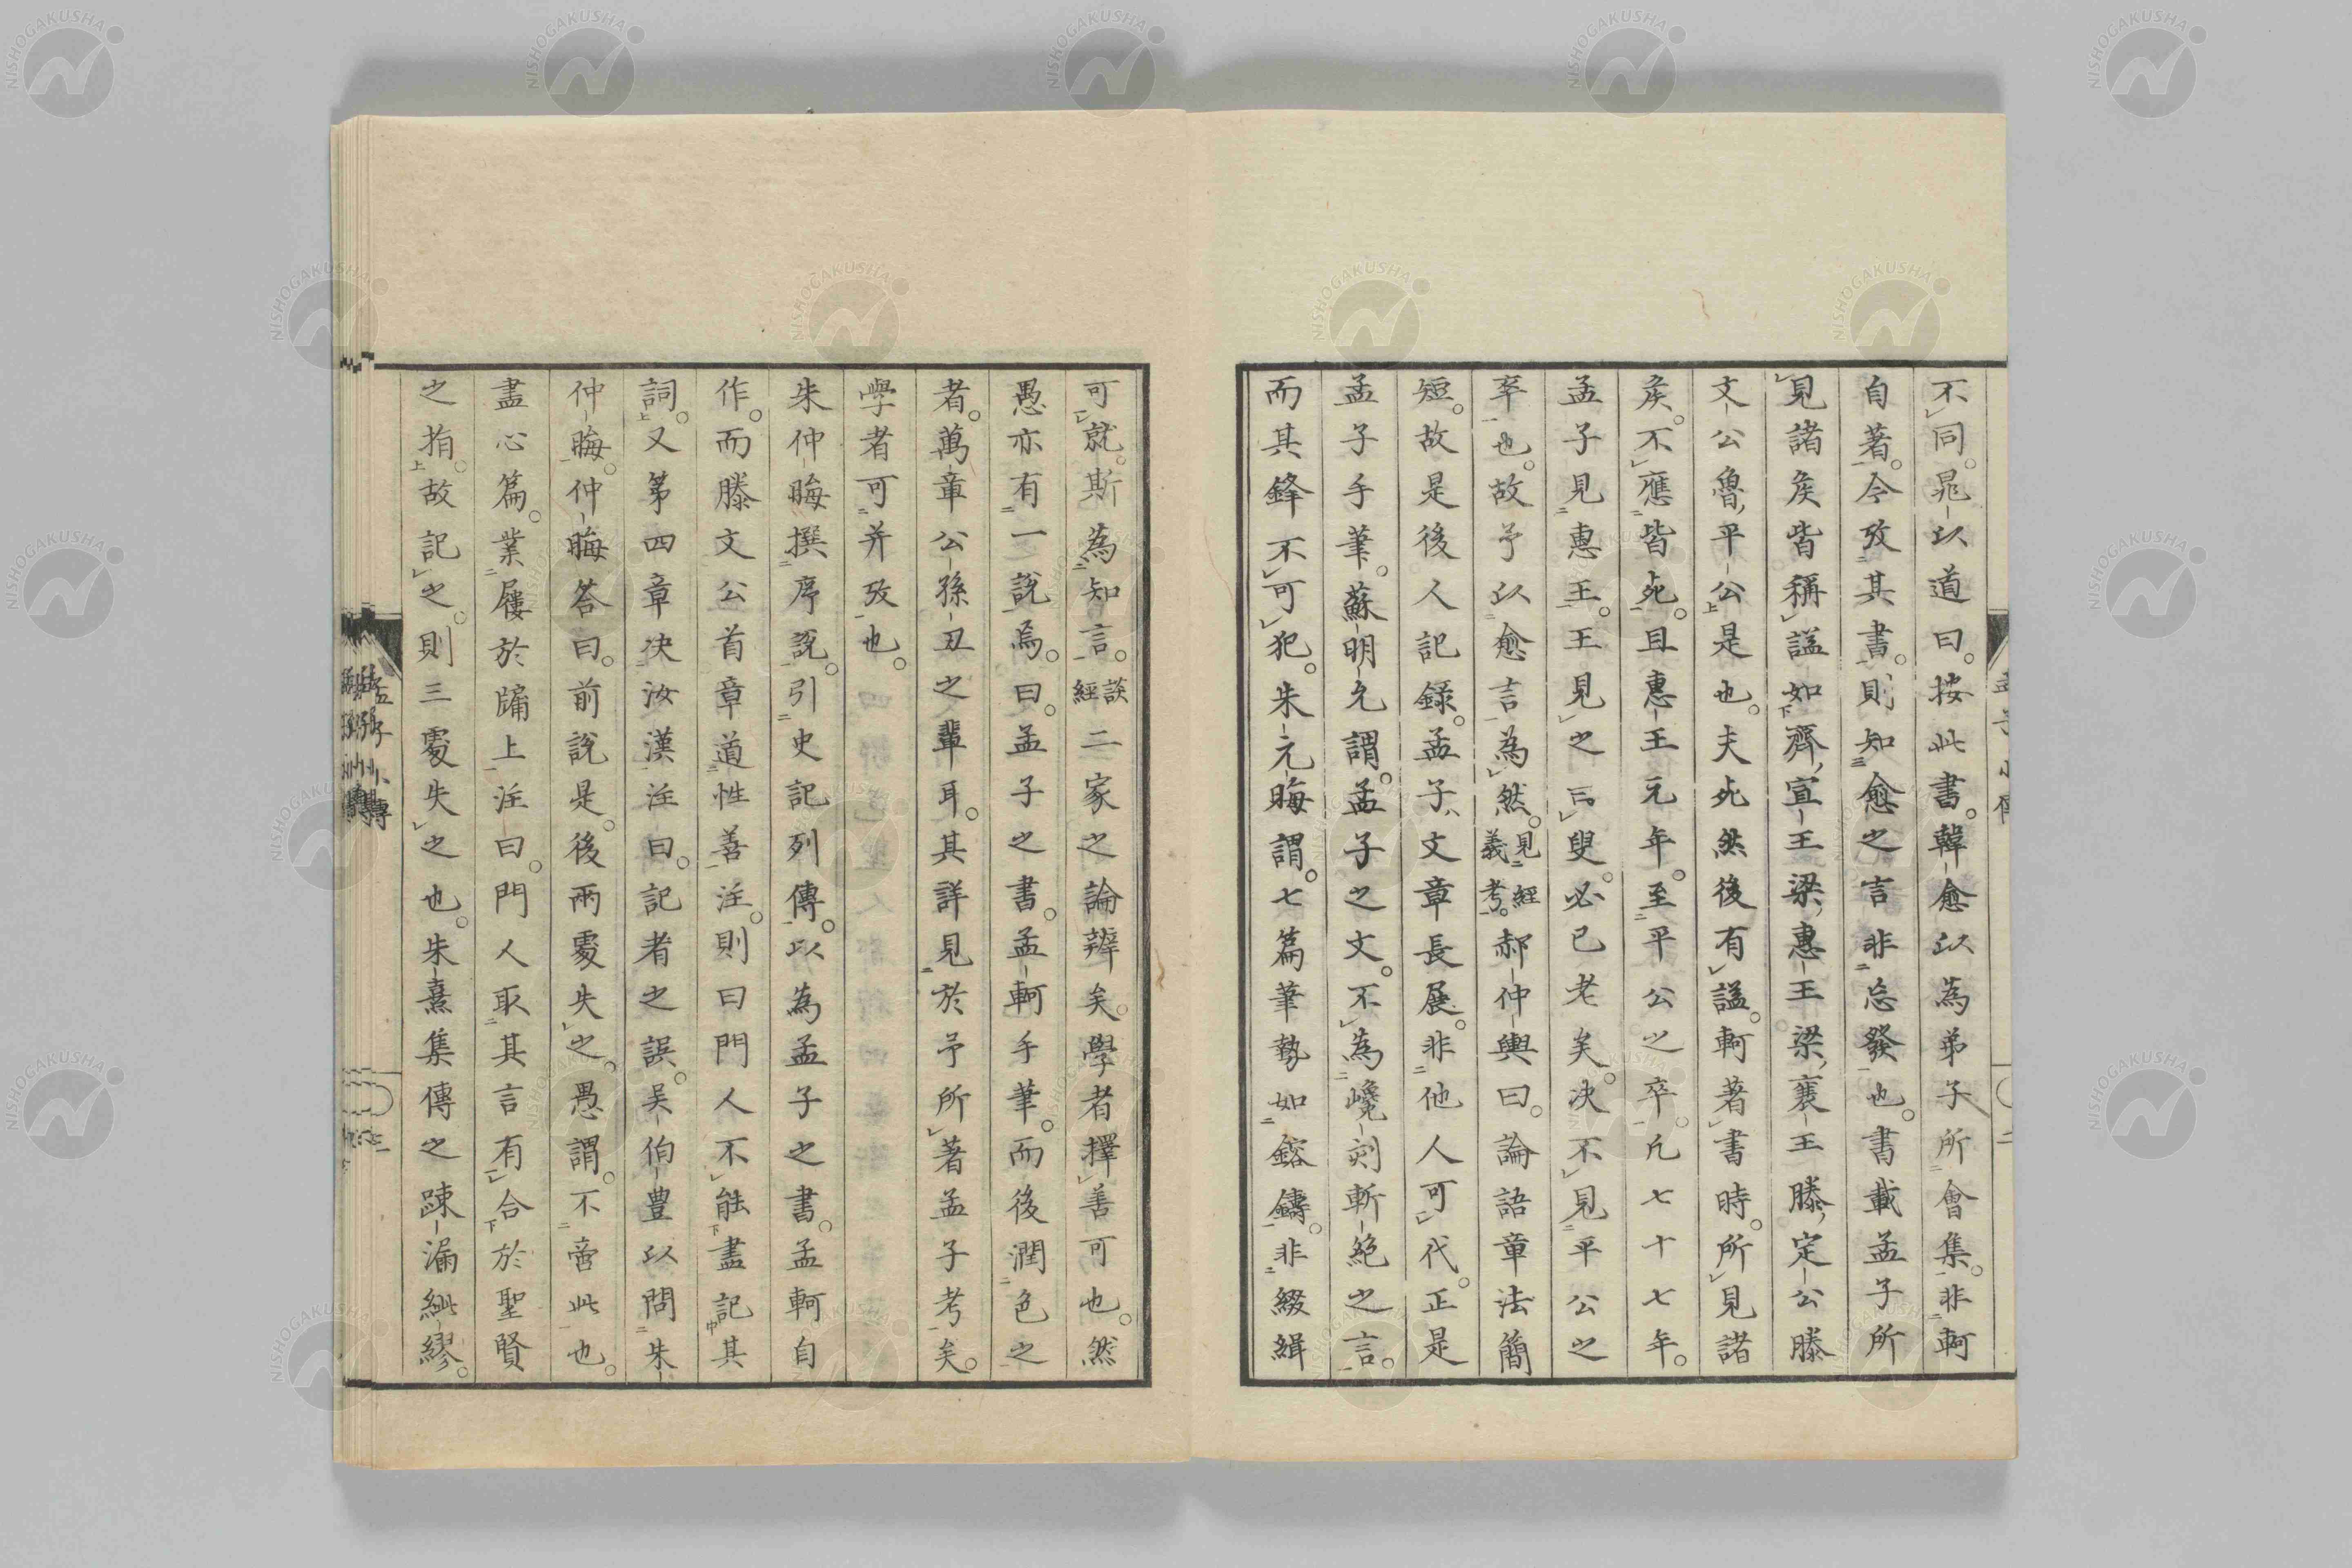 不同。晁以道曰。按此書。韓愈以為弟子所會集。非軻
自著。今攷其書。則知愈之言非忘發也。書載孟子所
見諸矦皆稱謚如齊宣王梁惠王梁襄王滕定公滕
文公魯平公是也。夫死然後有謚。軻著書時。所見諸
矦。不應皆死。且惠王元年。至平公之卒。凡七十七年。
孟子見惠王。王見之曰叟。必已老矣。決不見平公之
卒也。故予以愈言為然。見經義考。郝仲輿曰。論語章法簡
短。故是後人記録。孟子文章長展。非他人可代。正是
孟子手筆。蘇明允謂。孟子之文。不為巉刻斬絕之言。
而其鋒不可犯。朱元晦謂。七篇筆勢如鎔鑄。非綴緝
可就。斯為知言。談經二家之論辨矣。學者擇善可也。然
愚亦有一說焉。曰。孟子之書。孟軻手筆。而後潤色之
者。萬章公孫丑之輩耳。其詳見於予所著孟子考矣。
學者可并攷也。
朱仲晦撰序說。引史記列傳。以為孟子之書。孟軻自
作。而滕文公首章道性善注。則曰門人不能盡記其
詞。又第四章決汝漢注曰。記者之誤。吴伯豊以問朱
仲晦。仲晦答曰。前說是。後兩處失之。愚謂。不啻此也。
盡心篇。業屨於牖上注曰。門人取其言有合於聖賢
之指。故記之。則三處失之也。朱熹集傳之踈漏紕繆。
孟子小傳
三